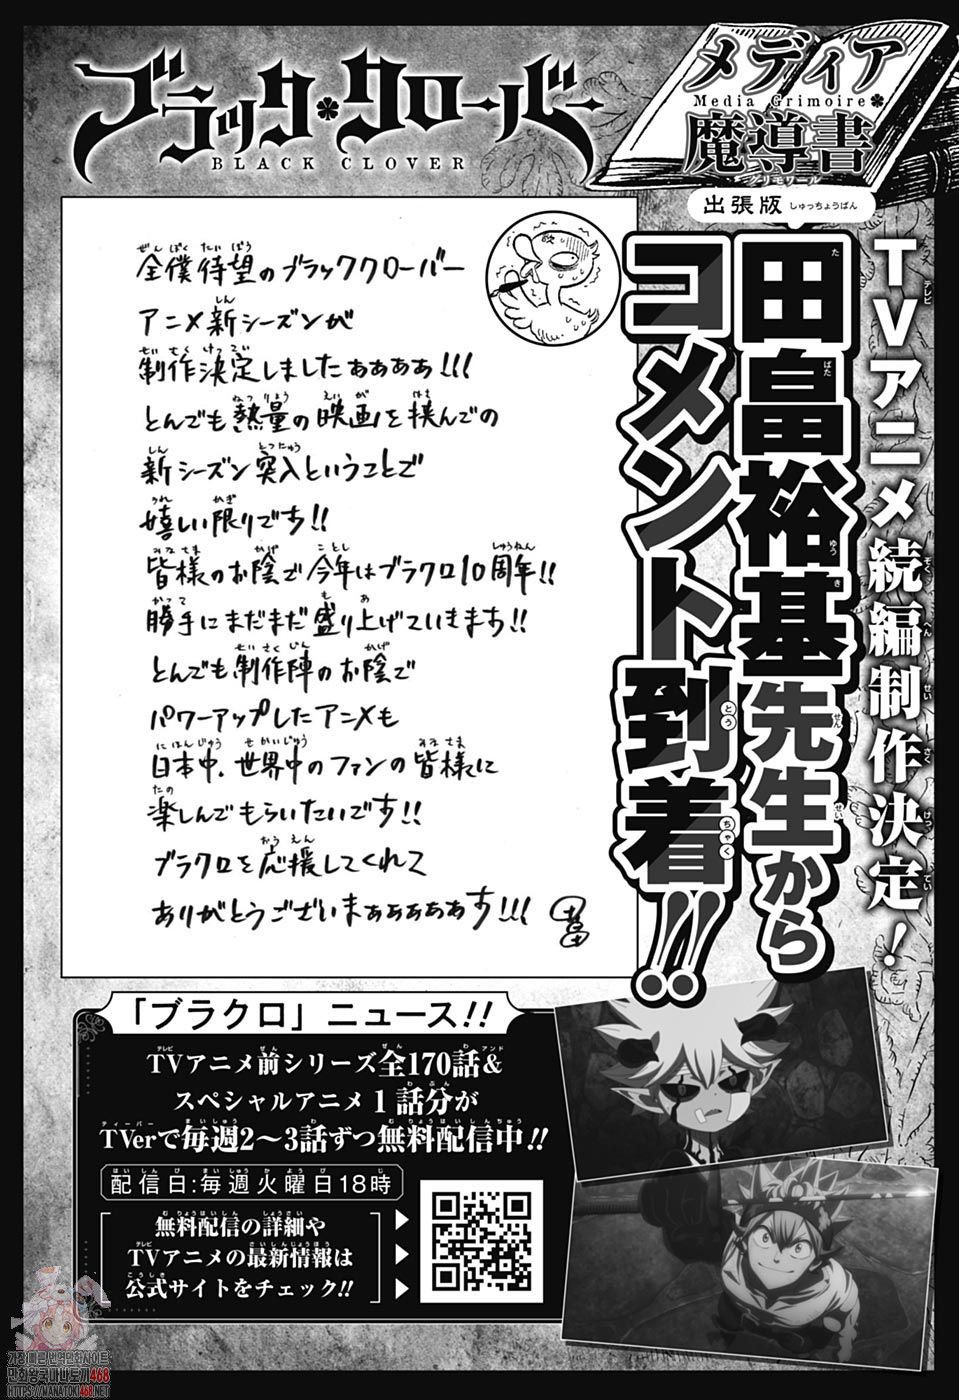 ブラック・クローバー
BLACK CLOVER
メディア
Media Grimoire
魔導書
グリモワール
出張版 しゅっちょうばん
TVアニメ続編制作決定!
田畠裕基先生から
コメント到着!!
全僕待望のブラッククローバー
アニメ新シーズンが
制作決定しましたぁぁぁぁ!!!
とんでも熱量の映画を挟んでの
新シーズン突入ということで
嬉しい限りです!!
皆様のお陰で今年はブラクロ10周年!!
勝手にまだまだ盛り上げていきます!!
とんでも制作陣のお陰で
パワーアップしたアニメも
日本中、世界中のファンの皆様に
楽しんでもらいたいです!!
ブラクロを応援してくれて
ありがとうございまぁぁぁぁぁす!!!
田畠
「ブラクロ」ニュース!!
TVアニメ前シリーズ全170話&
スペシャルアニメ1話分が
TVerで毎週2〜3話ずつ無料配信中!!
配信日:毎週火曜日18時
無料配信の詳細や
TVアニメの最新情報は
公式サイトをチェック!!
가장 빠른 번역만화사이트
만화왕국 마나토끼468
HTTPS://MANATOKI468.NET